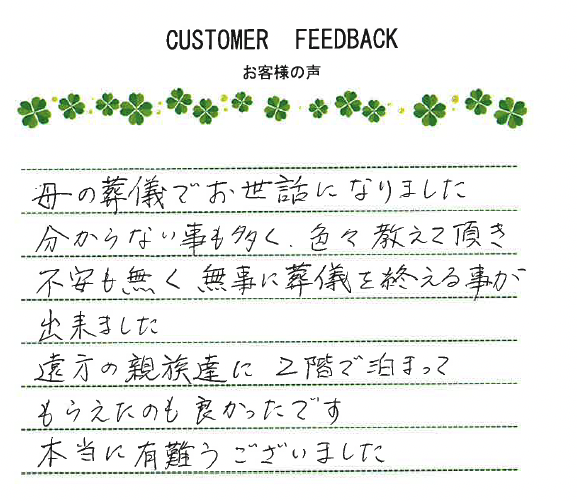 CUSTOMER FEEDBACK
お客様の声
母の葬儀でお世話になりました
分からない事も多く、色々教えて頂き
不安も無く無事に葬儀を終える事が
出来ました
遠方の親族達に2階で泊まって
もらえたのも良かったです
本当に有難うございました